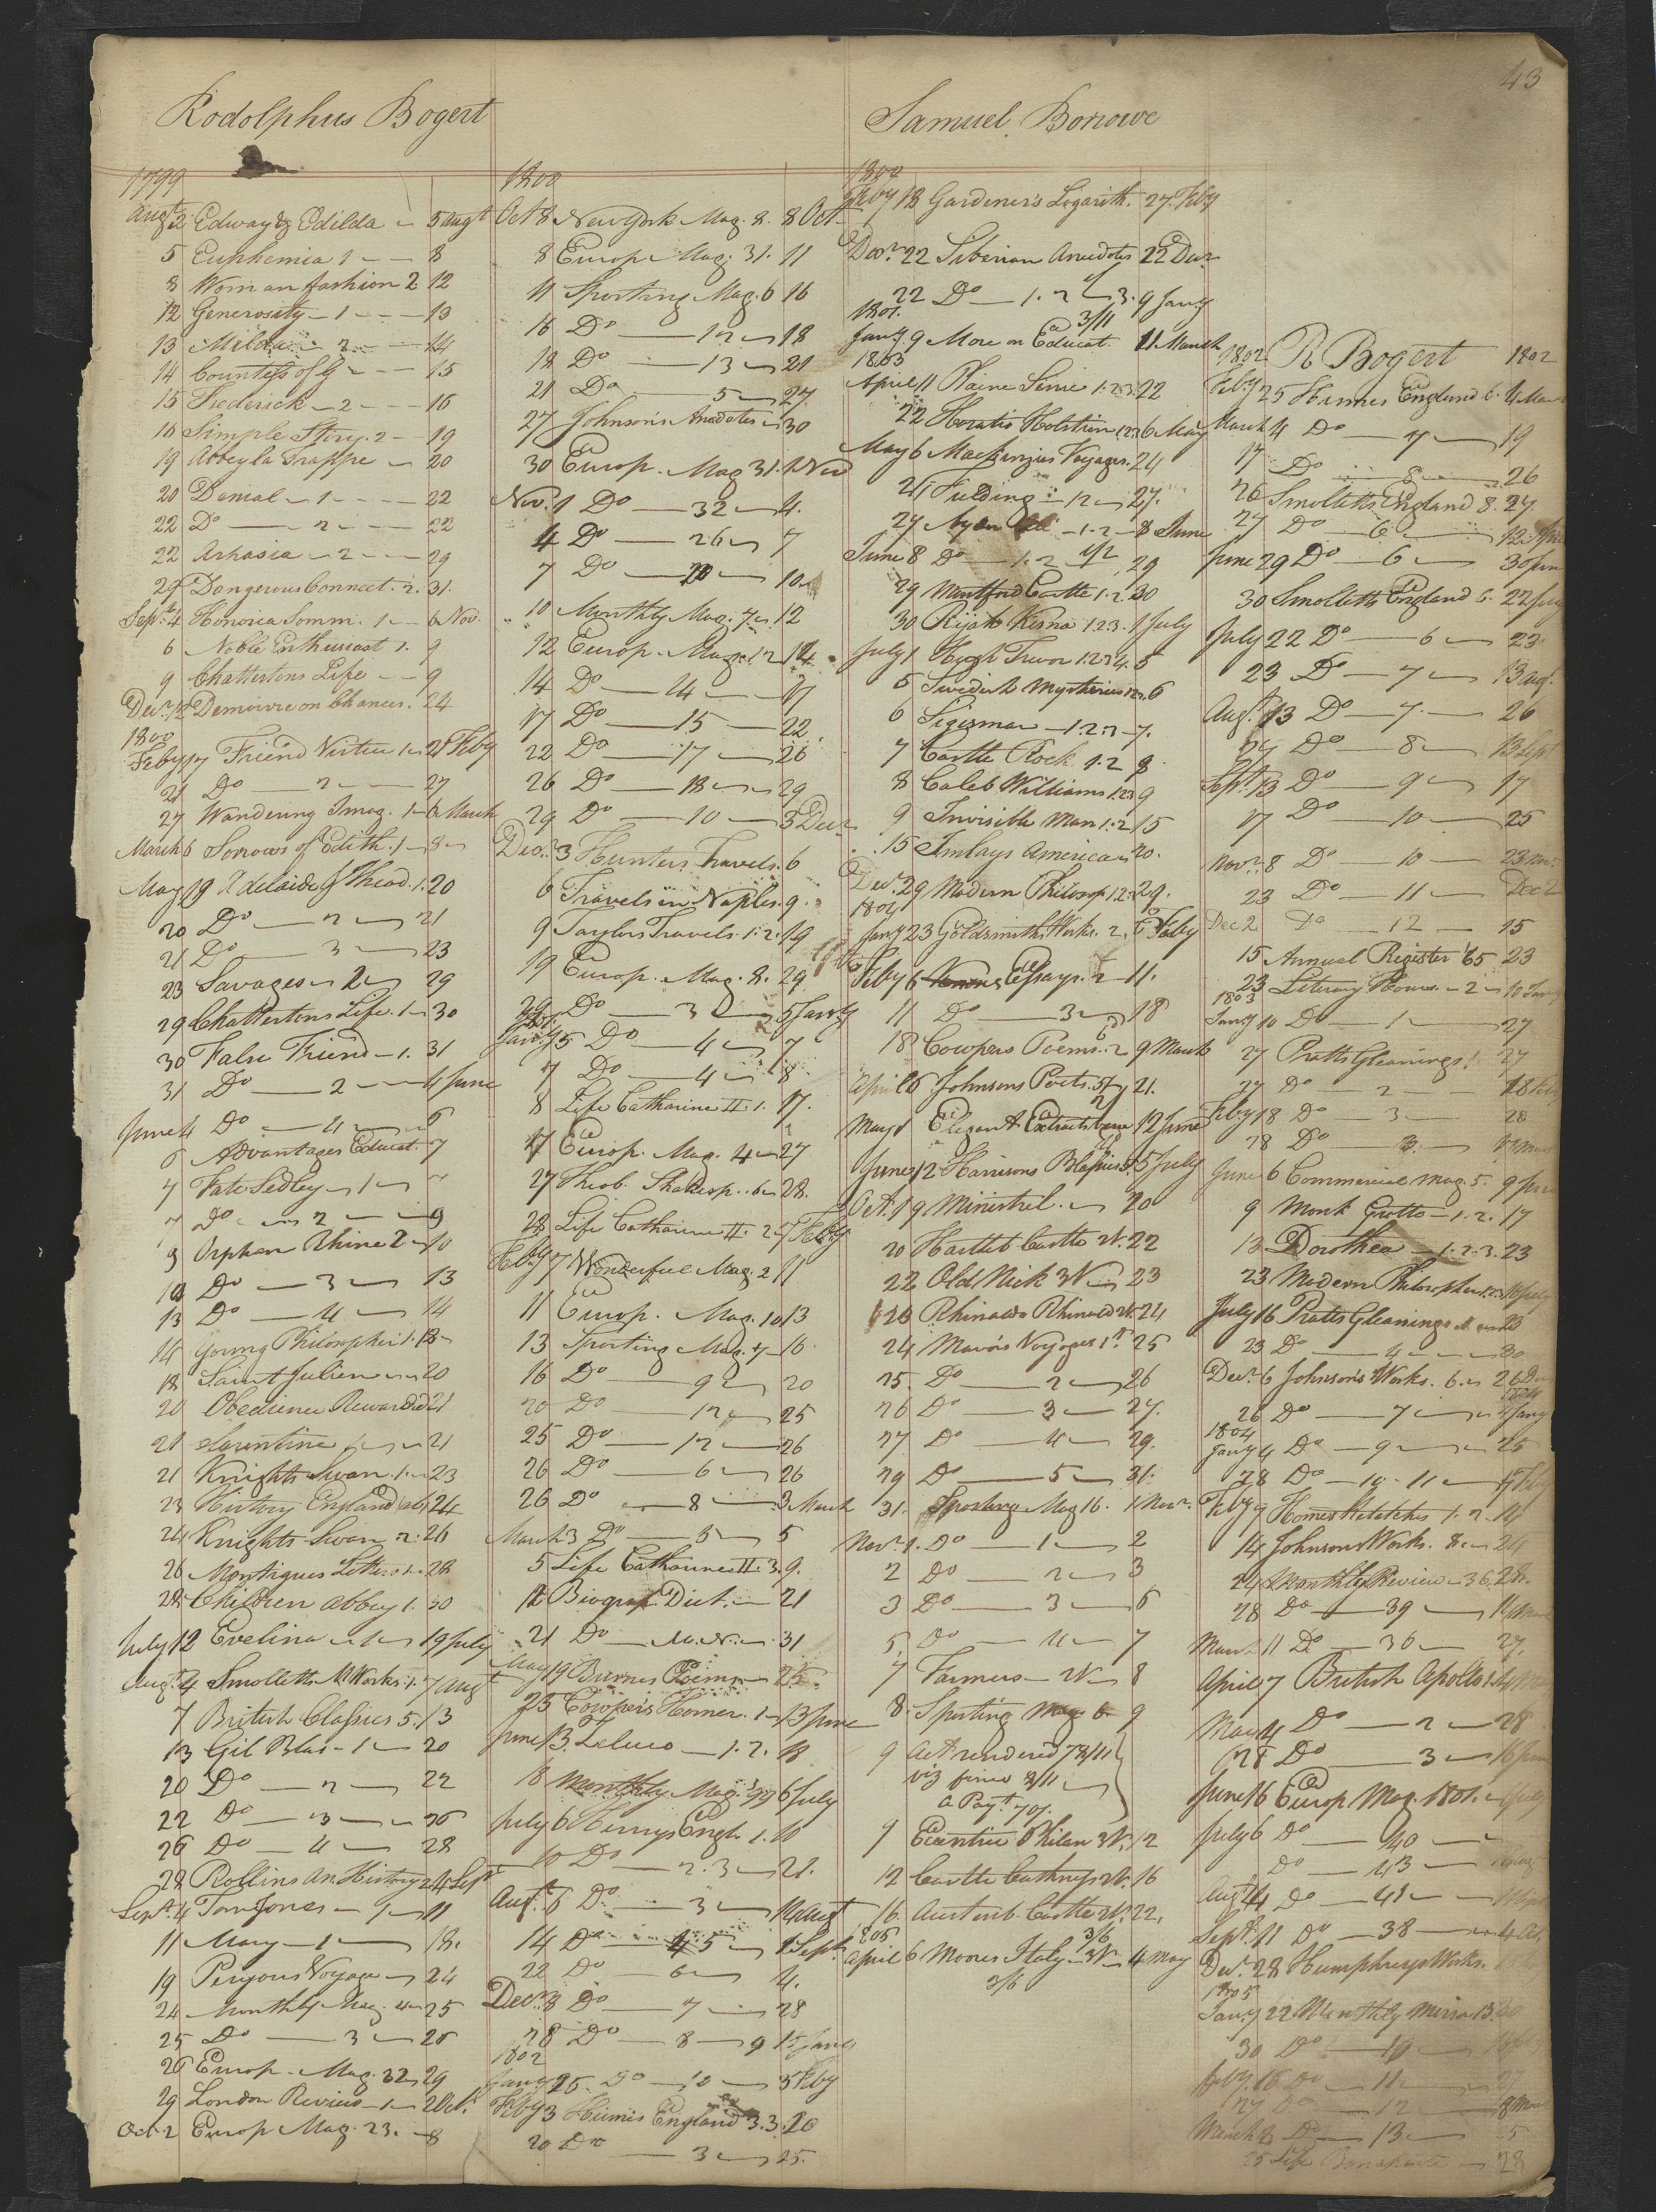 43
Rodolphus Bogert
1799
Augt 2 Edway & Edilda 5 Augt
5 Euphemia 1 8
8 Woman fashion 2 12
12 Generosity 1 13
13 Milda 2 14
14 Countess of G 15
15 Frederick 2 16
16 Simple Story 2 19
19 Abbey la Trappe 20
20 Denial 1 22
22 Do 2 22
22 Arpasia 2 29
29 Dangerous Connect. 2. 31.
Sept. 4 Honoria Somm. 1 6 Nov.
6 Noble Enthusiast 1. 9
9 Chattertons Life 9
Decr. 12 Demoivre on Chances. 24
1800
Feby 17 Friend Virtue 1 21 Feby
21 Do 2 27
27 Wandering Imag. 1 6 March
March 6 Sorrows of Edith. 1 8
May 19 Adelaide of Theod. 1. 20
20 Do 2 21
21 Do 3 23
23 Savages 2 29
29 Chattertons Life. 1 30
30 False Friend 1. 31
31 Do 2 4 June
June 4 Do 4 6
6 Advantages Educat. 7
7 Fate Sedley 1
7 Do 2 9
9 Orphan Rhine 2 10
10 Do 3 13
13 Do 4 14
14 Young Philosopher 1. 18
18 Saint Julien 20
20 Obedience Rewarded 21
21 21
21 Knights Swan. 1 23
23 History England 24
24 Knights Swan 2. 26
26 Montagues Letters 1. 28
28 Children Abbey 1. 30
July 12 Evelina 1 19 July
Augt. 4 Smolletts M. Works. 1. 7 Augt
7 British Classics 5. 13
13 Gil Blas 1 20
20 Do 2 22
22 Do 3 26
26 Do 4 28
28 Rollins An. History 2 4 Sept
Sept. 4 Tom Jones 1 11
11 Mary 1 18.
19 Voyage 24
24 Monthly Mag. 4 25
25 Do 3 26
26 Europ. Mag. 32 29
29 London Review 1 2 Oct.
Oct 2 Europ Mag. 23. 8
1800
Oct 8 New York Mag. 8. 8 Oct
8 Europ Mag. 31. 11
11 Sporting Mag. 6 16
16 Do 12 18
18 Do 13 21
21 Do 5 27.
27 Johnson's Anecdotes 30
30 Europ. Mag 31. 1 Nov
Nov. 1 Do 32 4.
4 Do 26 7
7 Do 10
10 Monthly Mag. 7 12
12 Europ. Mag. 12 14
14 Do 14 17
17 Do 15 22
22 Do 17 26
26 Do 18 29
29 Do 10 3 Decr
Decr. 3 Hunters Travels. 6
6 Travels in Naples. 9
9 Taylors Travels. 1. 2. 19
19 Europ. Mag. 8. 29
29 Do 3 5 Jany
Jany 5 Do 4 7
7 Do 4 8
8 Life Catharine II. 1. 17.
17 Europ. Mag. 4 27
27 Theob. Shakesp. 6 28.
28 Life Catharine II. 2 7 Feby
Feby 7 Wonderful Mag. 2 11
11 Europ. Mag. 10 13
13 Sporting Mag. 7 16
16 Do 9 20
20 Do 12 25
25 Do 12 26
26 Do 6 26
26 Do 8 3 March
March 3 Do 5 5
5 Life Catharine II. 3. 9.
12 Biograp Dict. 21
21 Do M. N. 31
May 19 Burnes Poems 25.
25 Cowper's Homer. 1 13 June
June 13. Zeluco 1. 2. 18
18 Monthly Mag. 6 July
July 6 Henrys Engl. 1. 10
10 Do 2. 3 21.
Augt. 6 Do 3 14 Augt
14 Do 5 1 Sept.
22 Do 6 4.
Decr. 8 Do 7 28
28 Do 8 9 15 Jany
1802
Jany 25. Do 10 3 Feby
Feby 3 Humes England 3. 3. 20
20 Do 3 25.
Samuel Borrowe
Feby 18 Gardener's Logarith. 27 Feby
Decr. 22 Siberian Anecdotes 22 Decr
22 Do 1. 2 3. 9 Jany
1801.
3/11
Jany. 9 More on Educat. 11 March
1803
April 11 Plaine Sense 1. 2. 3. 22
22 Horatio Holstein 1. 2. 3 6 May
May 6 Mackenzies Voyages. 24
24 Fielding 12 27.
27 1. 2 8 June
June 8 Do 1. 2 29
29 Mentford Castle 1. 2. 30
30 Rijah Kisna 1. 2. 3. 1 July
July 1 Hugh Trevor 1. 2. 3 4. 5
5 Swedish Mysteries 1. 2. 6
6 Sigismar 1. 2. 3 7.
7 Castle Rock. 1. 2 8
8 Caleb Williams 1. 2. 9
9 Invisible Man 1. 2 15
15 Imlays America 20.
Decr. 29 Modern Philosop. 1. 2. 29.
1804
Jany 23 Goldsmiths Works. 2. 6 Feby
Feby 6 Essays. 2 11.
11 Do 3 18
18 Cowpers Poems. 2 9 March
April 6 Johnsons Poets. 21.
May 1 Elegant Extracts 12 June
June 12 Harrisons Classics 5. 5 July
Oct. 19 Minstrel. 20
20 Hartleb Castle 22
22 Old Nick 3 V 23
23 Rhinaldo Rhinaldi 2 V. 24
24 Mavor's Voyages 1st. 25
25. Do 2 26
26 Do 3 27.
27 Do 4 29.
29 Do 5 31.
31. Sporting Mag 16. 1 Novr.
Novr. 1. Do 1 2
2 Do 2 3
3 Do 3 5
5. Do 4 7
7 Farmers 8
8. Sporting Mag 6 9
9 Act rendered 78/11
viz fines 8/11
a Payt. 70/.
9 Ecentric Philan 3 V. 12
12 Castle Cathnys 2 V. 16
16. Austenb. Castle 2 V. 22.
1805
3/6
April 6 Moores Italy 3 V 4 May
3/6
R Bogert
1802 1802
Feby 25 Humes England 6. 4 Mar
March 4 Do 7 19
17 Do 8 26
26 Smolletts England 8. 27.
27 Do 6 12 April
June 29 Do 6 30 Jun
30 Smolletts England 6. 22 July
July 22 Do 6 23
23 Do 7 13 Aug.
Augt. 13 Do 7 26
27 Do 8 13 Sept
Sept. 13 Do 9 17
17 Do 10 25
Novr. 8 Do 10 23 Nov.
23 Do 11 Dec 2
Dec 2 Do 12 15
15 Annual Register '65 23
23 Literary Hours 2 10 Jany
1803
Jany 10 Do 1 27
27 Pratts Gleanings 1. 27
27 Do 2 18 Feb
Feby 18 Do 3 28
28 Do 3.
June 6 Commercial Mag. 5. 9 Jun
9 Monk Grotto 1. 2. 17
13 Dorothea 1. 2. 3. 23
23 Modern Philosopher 16 July
July 16 Pratts Gleanings 23
23 Do 4 30
Decr. 6 Johnson's Works. 6. 26 Dec
1804
26 Do 7 4 Jany
1804
Jany 4 Do 9 25
28 Do 10. 11 Feby
Feby 9 Homes Sketches 1. 2. 14
14 Johnsons Works. 8 24
24 Monthly Review 36. 28.
28 Do 39
March 11 Do 36 27.
April 7 British Apollo 1
May 4 Do 2 28
28 Do 3 16 Jun
June 16 Europ Mag. 1801. July
July 6 Do 40
Do 43
Augt 4 Do 41
Sept. 11 Do 38 4 Oct.
Decr. 28 Humphreys Works.
1805
Jany 22 Monthly Mirror 13. 30
30 Do 10
Feby. 16 Do 11 27
27 Do 12 8 Mar
March 8 Do 13 5
25 Life Bonaparte 28